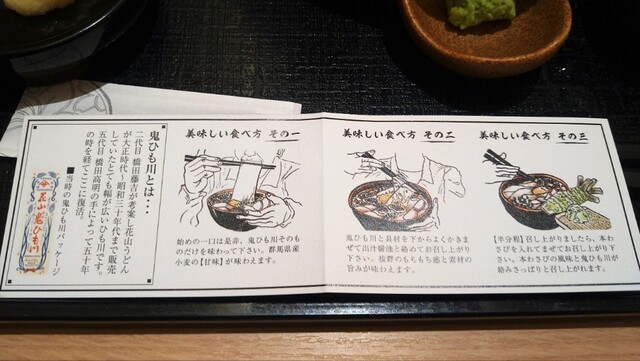 鬼ひも川とは・・・
二代目 橋田藤吉が考案し花山うどん
が大正時代～昭和三十年代まで販売
していたとても幅が広いひも川です。
五代目 橋田高明の手によって五十年
の時を経てここに復活。
■当時の鬼ひも川パッケージ
鬼ひも川
美味しい食べ方 その一
始めの一口は是非、鬼ひも川そのも
のだけを味わって下さい。群馬県産
小麦の【甘味】が味わえます。
美味しい食べ方 その二
鬼ひも川と具材を下からよくかきま
ぜて出汁醤油と絡めてお召し上がり
下さい。抜群のもちもち感と素材の
旨みが味わえます。
美味しい食べ方 その三
【半分程】召し上がりましたら、本わ
さびを入れてませてお召し上がり下
さい。本わさびの風味と鬼ひも川が
絡みさっぱりと召し上がれます。